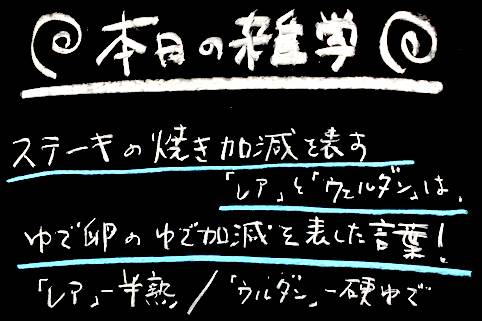 本日の雑学
ステーキの焼き加減を表す
「レア」と「ウェルダン」は、
ゆで卵のゆで加減を表した言葉!
「レア」ー半熟/「ウルダン」ー硬ゆで